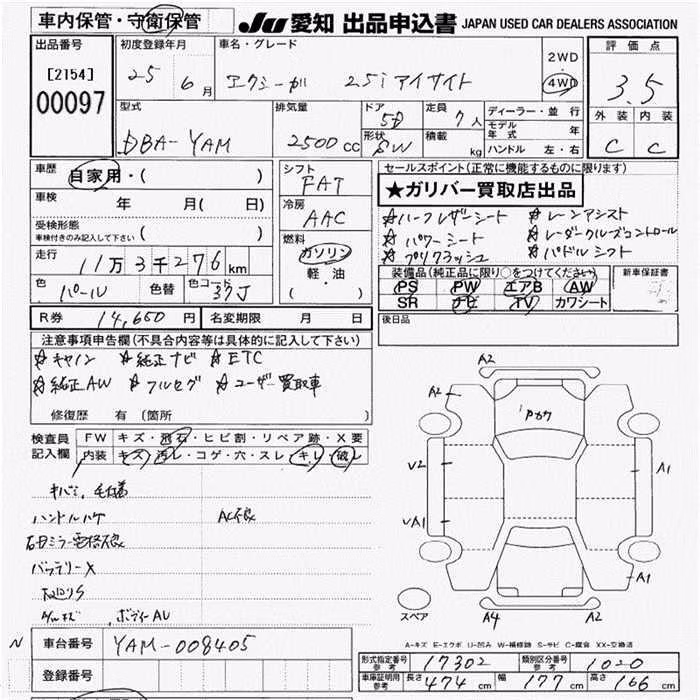 車内保管・守衛保管
JU 愛知 出品申込書 JAPAN USED CAR DEALERS ASSOCIATION
出品番号
[2154]
00097
初度登録年月
25 6月
車名・グレード
エクシーガ 2.5i アイサイト
2WD
・
4WD
評価点
3.5
外装 内装
C C
型式
DBA-YAM
排気量
2500cc
ドア
5D
形状
SW
定員
7人
積載
kg
ディーラー・並行
モデル年式 年
ハンドル 左・右
車歴
自家用・( )
車検
年 月( 日)
受検形態
車検付きのみ記入して下さい ( )
走行
11万3千276km
色
パール
色替
色コード
37J
シフト
FAT
冷房
AAC
燃料
ガソリン
・
軽・油
( )
セールスポイント(正常に機能するものに限ります)
★ガリバー買取店出品
☆ハーフレザーシート ☆レーンアシスト
☆パワーシート ☆レーダークルーズコントロール
☆プリクラッシュ ☆パドルシフト
装備品(純正品に限り○をつけてください)
PS PW エアB AW
SR ナビ TV カワシート
新車保証書
R券 14,650円
名変期限 月 日
後日品
注意事項申告欄(不具合内容等は具体的に記入して下さい)
☆キャノン ☆純正ナビ ☆ETC
☆純正AW ☆フルセグ ☆ユーザー買取車
修復歴 有(箇所 )
検査員記入欄
FW キズ・飛石・ヒビ割・リペア跡・X要
内装 キズ・汚レ・コゲ・穴・スレ・キレ・破レ
ハンドルハゲ AC不良
バッテリーX
ボディーAU
A2
A2
V2
A1
A1
A4 A2
スペア
A-キズ E-エクボ U-凹み W-補修跡 S-サビ C-腐食 XX-交換済
N
車台番号 YAM-008405
登録番号
形式指定番号 参考 17302
類別区分番号 参考 1020
車庫証明用 参考 長さ 474cm 幅 177cm 高さ 166cm